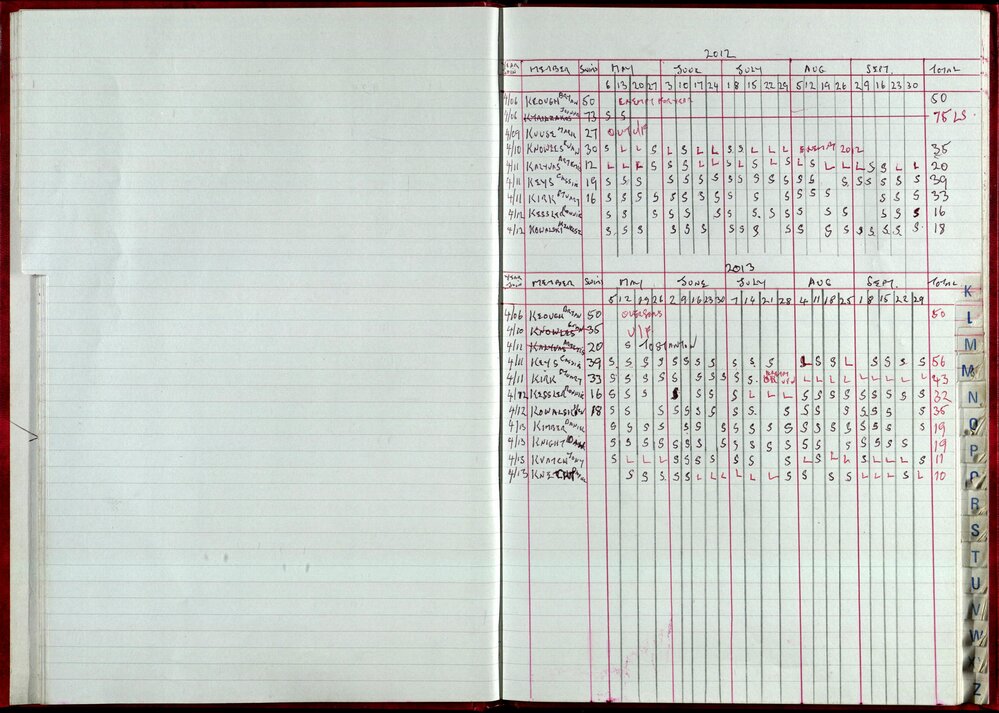 2012
YEAR JOIN MEMBER SWIMS MAY JUNE JULY AUG SEPT. TOTAL
6 13 20 27 3 10 17 24 1 8 15 22 29 5 12 19 26 2 9 16 23 30
4/06 KEOUGH BRIAN 50 EXEMPT FOR YEAR 50
4/06 73 S S 75 LS
4/09 KUUSE MARK 27 OUT U/F
4/10 KNOWLES EVAN 30 S L L S L S L L S S L L L EXEMPT 2012 35
4/11 KALYVAS 12 L L L S S S L L L S L S L S L L L L S S L L 20
4/11 KEYS CASSIA 19 S S S S S S S S S S S S S S S S S S S 39
4/11 KIRK STUART 16 S S S S S S S S S S S S S S S S S 33
4/12 KESSLER 16 S S S S S S S S S S S S S S S S 16
4/12 KOWALSKI S S S S S S S S S S S S S S S S S S 18
2013
YEAR JOIN MEMBER SWIM MAY JUNE JULY AUG SEPT. TOTAL
5 12 19 26 2 9 16 23 30 7 14 21 28 4 11 18 25 1 8 15 22 29
4/06 KEOUGH BRIAN 50 OVERSEAS 50
4/10 KNOWLES EVAN 35 U/F
4/12 KALYVAS 20 S TO STANTON
4/11 KEYS CASSIA 39 S S S S S S S S S S S L S S L S S S S 56
4/11 KIRK STUART 33 S S S S S S S S S S L L L L L L L L L 43
4/12 KESSLER 16 S S S S S S S S L L L S S S S S S S S S 32
4/12 KOWALSKI 18 S S S S S S S S S S S S S S S S 35
4/13 KIMBER DANIEL S S S S S S S S S S S S S S S S S S S 19
4/13 KNIGHT S S S S S S S S S S S S S S S S S S S 19
4/13 TONY S L L L S S S S S S L S L L S L L L S 11
4/13 S S S S S L L L L L L S S S S S L L L S L 10
K
L
M
M
N
O
P
Q
R
S
T
U
V
W
X
Z